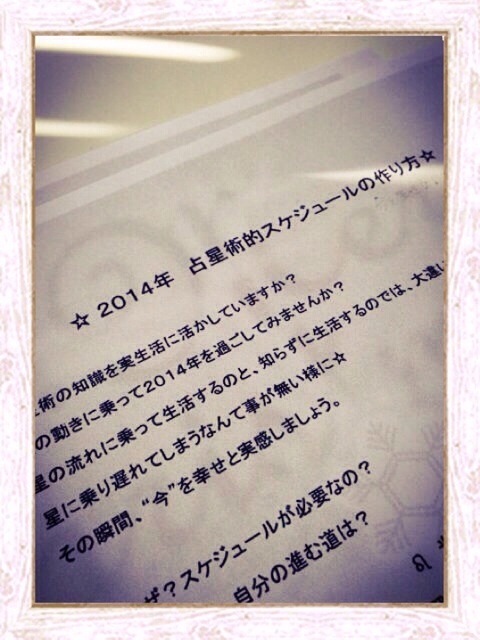 ☆ 2014年 占星術的スケジュールの作り方☆
術の知識を実生活に活かしていますか?
の動きに乗って2014年を過ごしてみませんか?
星の流れに乗って生活するのと、知らずに生活するのでは、大違い
星に乗り遅れてしまうなんて事が無い様に☆
その瞬間、“今”を幸せと実感しましょう。
ぜ?スケジュールが必要なの?
自分の進む道は?